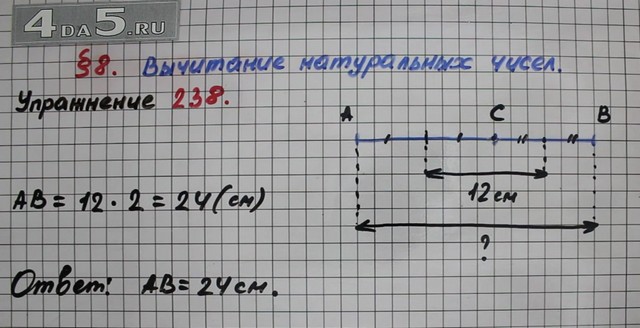 4DA5.RU
§8. Вычитание натуральных чисел.
Упражнение 238.
A C B
12 см
?
AB = 12 · 2 = 24 (см)
Ответ: AB = 24 см.